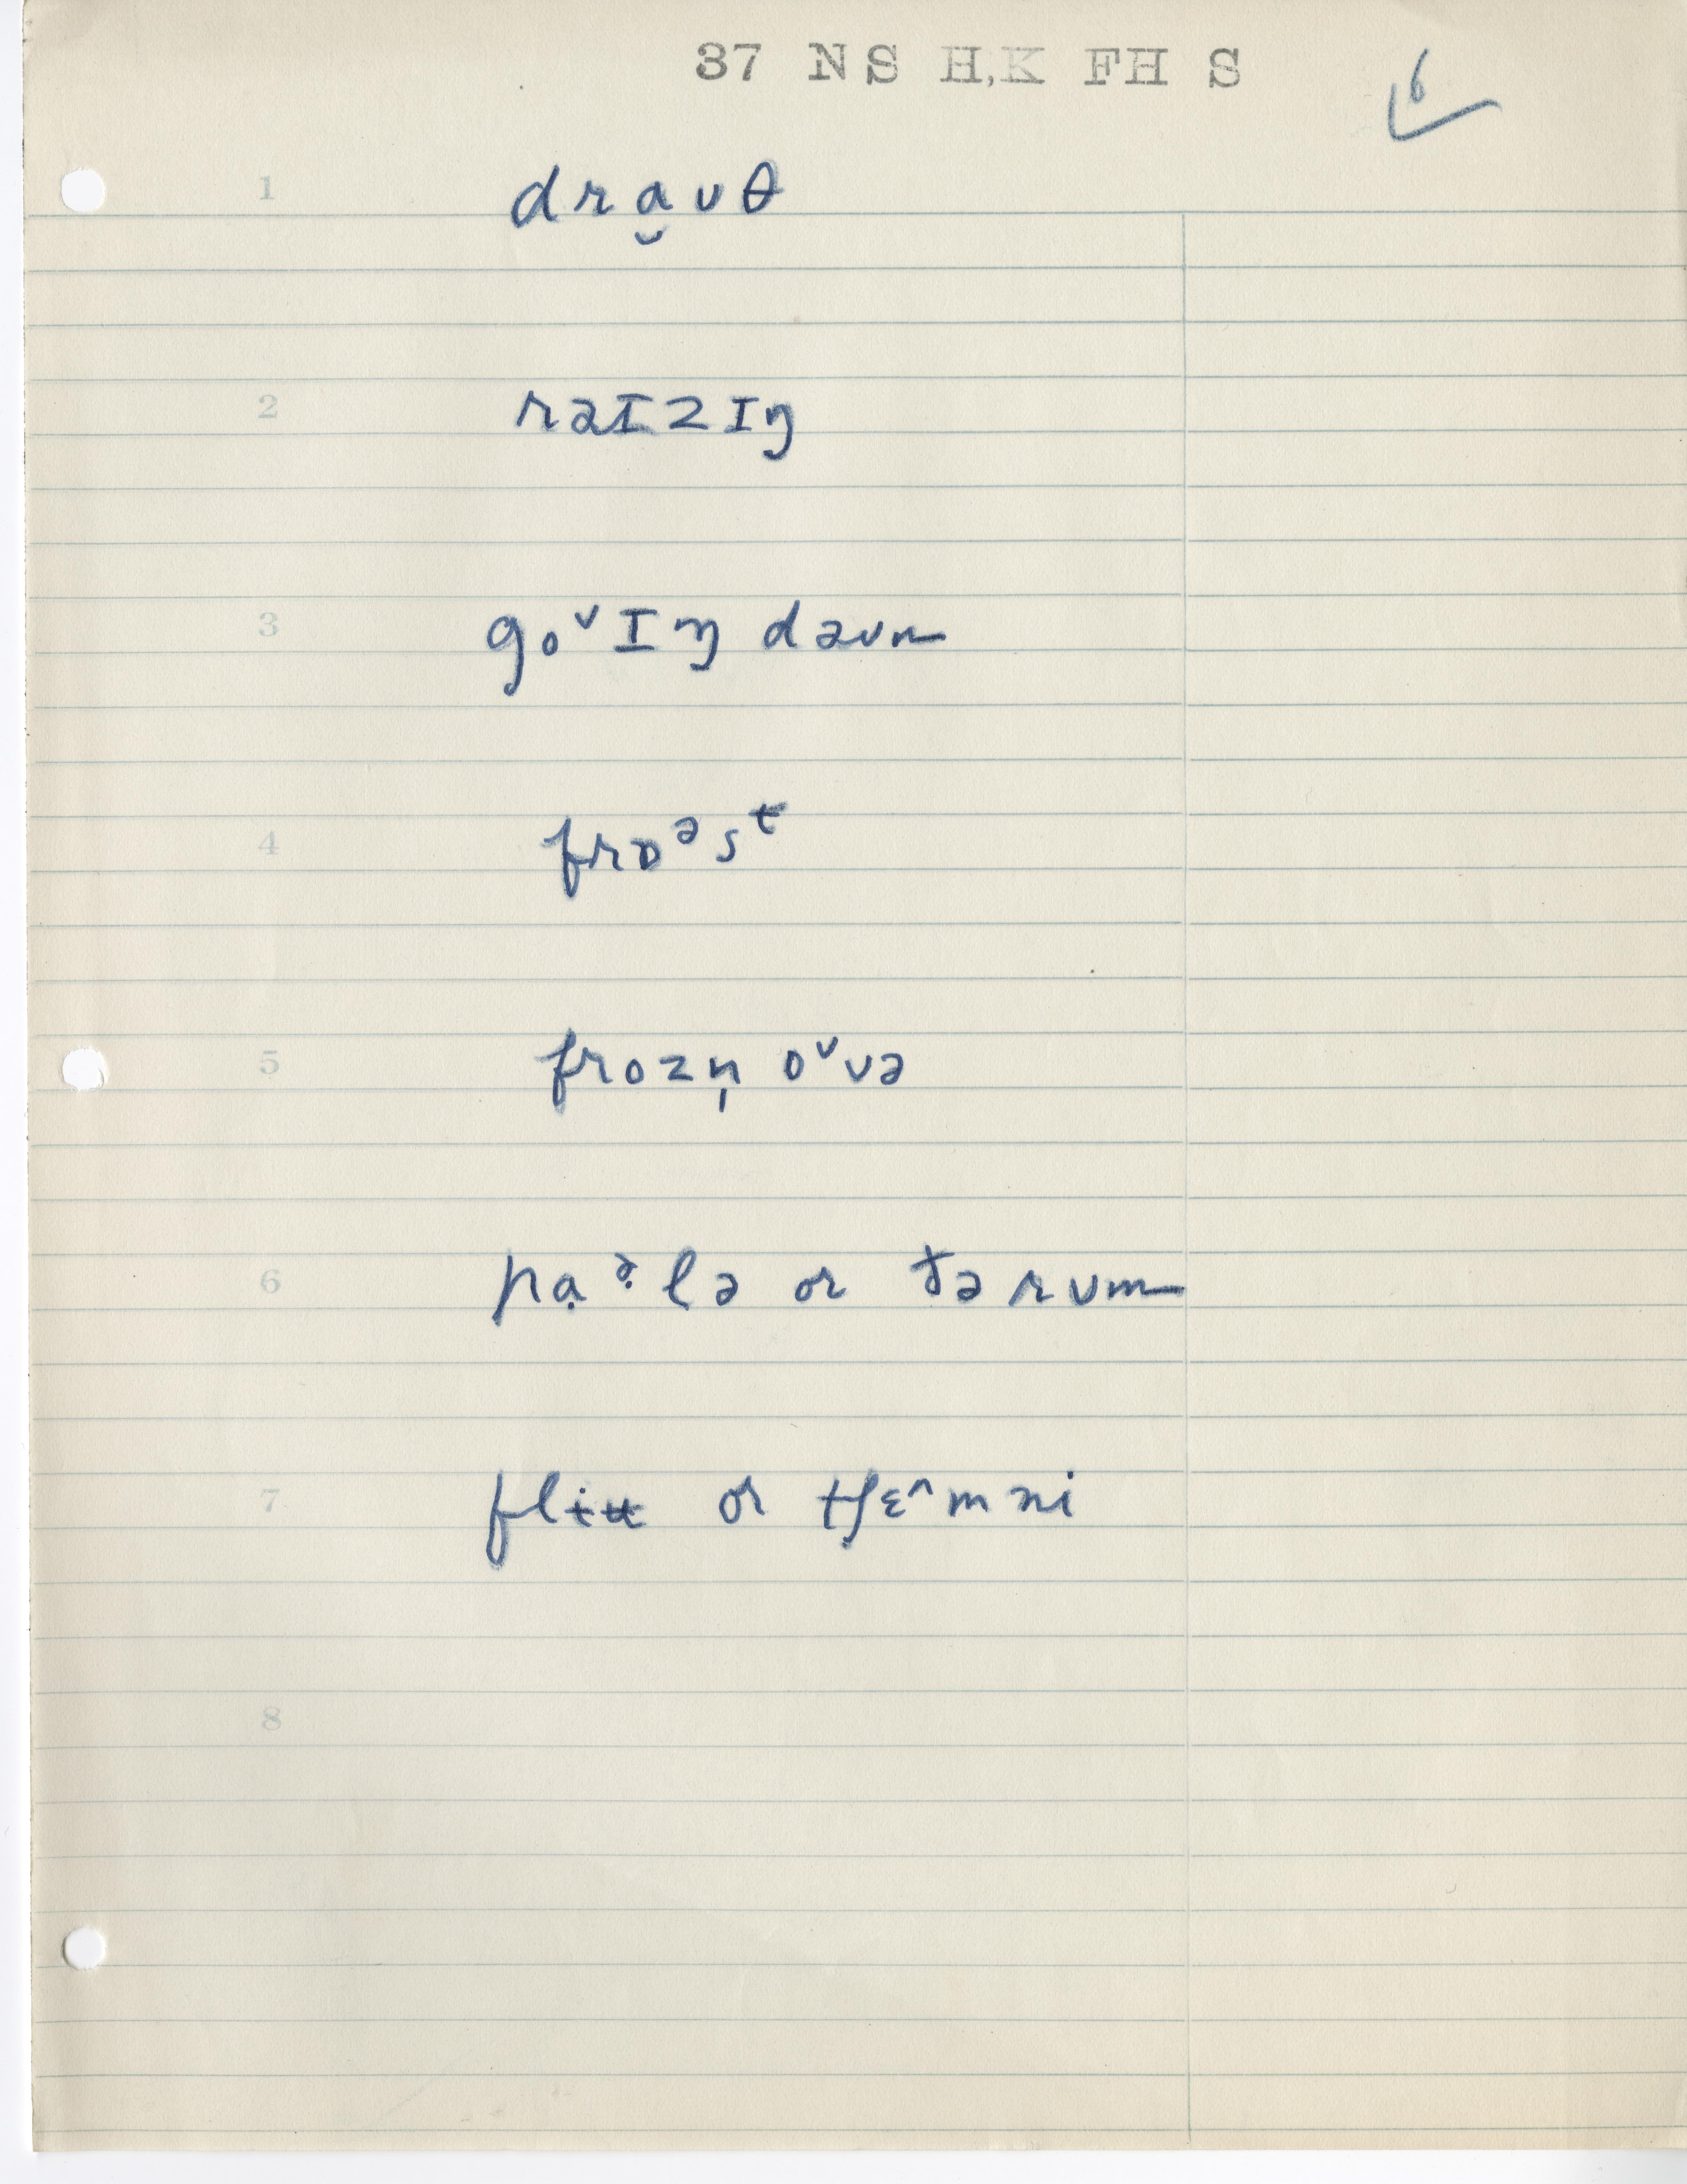 37 NS H,K FH S
6
1 dra̮ʊθ
2 rəIzIŋ
3 goᵛIŋ dəʊn
4 frɒᵊsᵗ
5 frozn̩ oᵛvə
6 pạᵊ̣lə or ðə rʊm
7 flɨʉ or tʃ̣ɛ^mni
8